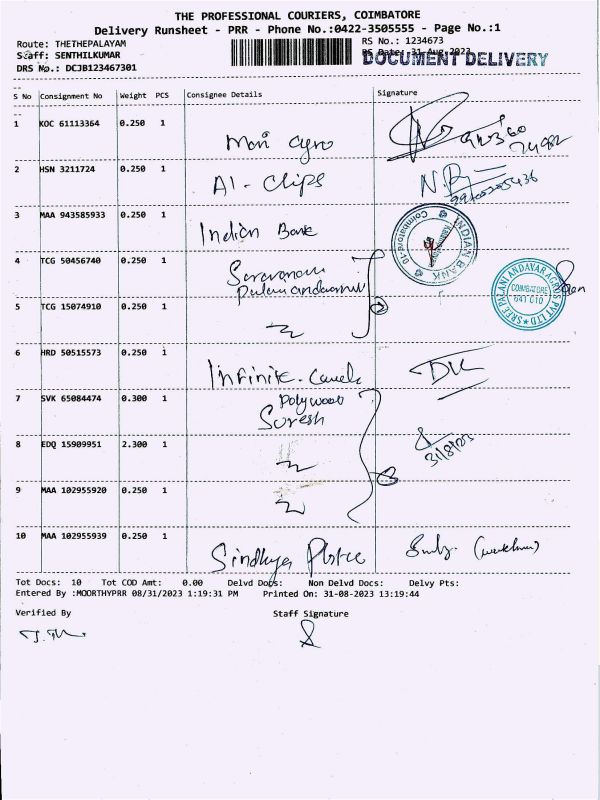 THE PROFESSIONAL COURIERS, COIMBATORE
Delivery Runsheet - PRR - Phone No.:0422-3505555 - Page No.:1
Route: THETHEPALAYAM
RS No.: 1234673
Staff: SENTHILKUMAR
RS Date: 31-Aug-2023
DOCUMENT DELIVERY
DRS No.: DCJB123467301
S No Consignment No Weight PCS Consignee Details Signature
1 KOC 61113364 0.250 1
2 HSN 3211724 0.250 1 A1 - Clips
3 MAA 943585933 0.250 1 Indian Bank
INDIAN BANK
Coimbatore
4 TCG 50456740 0.250 1 Saravanan
SREE PALANI ANDAVAR AGROS PVT LTD
COIMBATORE
5 TCG 15074910 0.250 1
6 HRD 50515573 0.250 1 Infinite
7 SVK 65084474 0.300 1 Polywood
Suresh
8 EDQ 15909951 2.300 1 31/8/23
9 MAA 102955920 0.250 1
10 MAA 102955939 0.250 1 Sindhya
Tot Docs: 10 Tot COD Amt: 0.00 Delvd Docs: Non Delvd Docs: Delvy Pts:
Entered By :MOORTHYPRR 08/31/2023 1:19:31 PM Printed On: 31-08-2023 13:19:44
Verified By Staff Signature